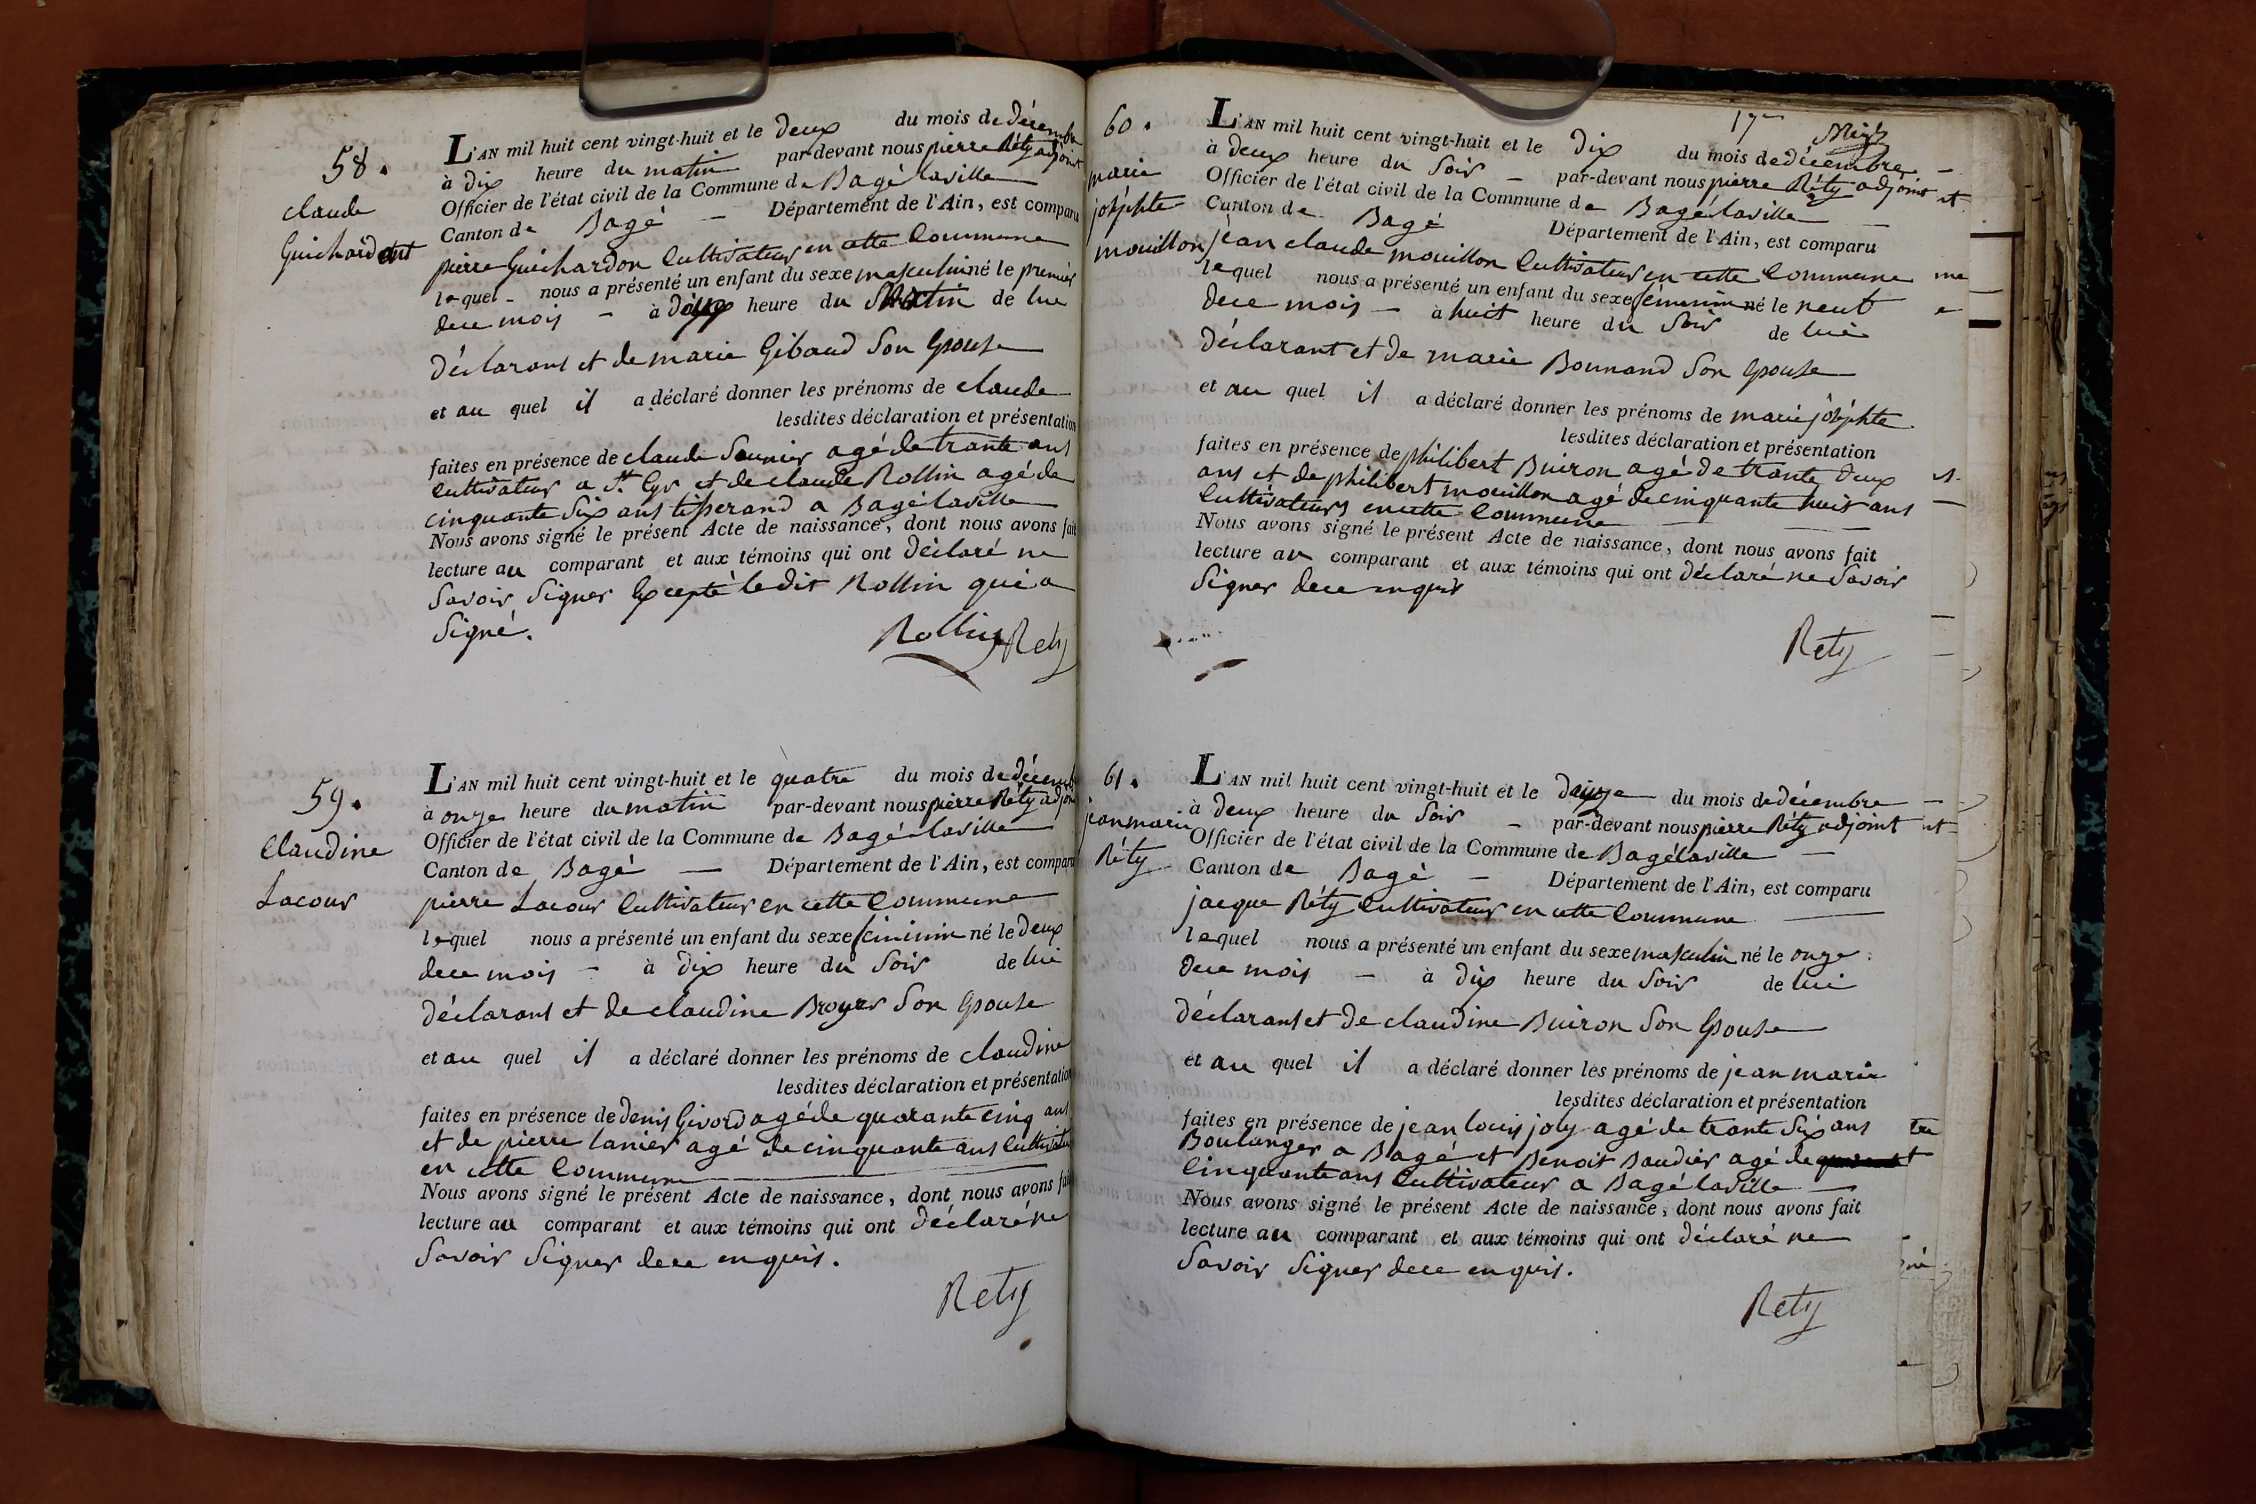 58.
claude
Guichardon
L'AN mil huit cent vingt-huit et le deux du mois de décembre
à dix heure du matin par-devant nous pierre Réty adjoint
Officier de l'état civil de la Commune de Bagé laville
Canton de Bagé — Département de l'Ain, est comparu
pierre Guichardon Cultivateur en cette Commune
lequel - nous a présenté un enfant du sexe masculin né le premier
dece mois - à heure du matin de lui
déclarant et de marie Gibaud Son Epouse
et au quel il a déclaré donner les prénoms de claude
lesdites déclaration et présentation
faites en présence de claude Saunier agé de trante ans
Cultivateur a St. Cyr et de claude Rollin agé de
cinquante Six ans tisserand a Bagé laville
Nous avons signé le présent Acte de naissance, dont nous avons fait
lecture au comparant et aux témoins qui ont déclaré ne
Savoir Signer Excepté ledit Rollin qui a
Signé.
Rollin Rety
59.
Claudine
Lacour
L'AN mil huit cent vingt-huit et le quatre du mois de décembre
à onze heure du matin par-devant nous pierre Réty adjoint
Officier de l'état civil de la Commune de Bagé laville
Canton de Bagé — Département de l'Ain, est comparu
pierre Lacour Cultivateur en cette Commune
lequel nous a présenté un enfant du sexe féminin né le deux
dece mois - à dix heure du Soir de lui
déclarant et de claudine Broyer Son Epouse
et au quel il a déclaré donner les prénoms de claudine
lesdites déclaration et présentation
faites en présence de denis Givord agé de quarante cinq ans
et de pierre Lanier agé de cinquante ans Cultivateurs
en cette Commune
Nous avons signé le présent Acte de naissance, dont nous avons fait
lecture au comparant et aux témoins qui ont déclaré ne
Savoir Signer dece enquis.
Rety
17me
60.
marie
joséphte
mouillon
L'AN mil huit cent vingt-huit et le dix du mois de décembre -
à deux heure du Soir - par-devant nous pierre Réty adjoint
Officier de l'état civil de la Commune de Bagé laville
Canton de Bagé Département de l'Ain, est comparu
jean claude mouillon Cultivateur en cette Commune
lequel nous a présenté un enfant du sexe féminin né le neuf
dece mois - à huit heure du Soir de lui
déclarant et de marie Bonnand Son Epouse
et au quel il a déclaré donner les prénoms de marie joséphte
lesdites déclaration et présentation
faites en présence de philibert Buiron agé de trante deux
ans et de philibert mouillon agé de cinquante huit ans
Cultivateurs en cette Commune
Nous avons signé le présent Acte de naissance, dont nous avons fait
lecture au comparant et aux témoins qui ont déclaré ne Savoir
Signer dece enquis
Rety
61.
jean marie
Réty
L'AN mil huit cent vingt-huit et le douze du mois de décembre -
à deux heure du Soir - par-devant nous pierre Réty adjoint
Officier de l'état civil de la Commune de Bagé laville -
Canton de Bagé - Département de l'Ain, est comparu
jacque Réty Cultivateur en cette Commune
lequel nous a présenté un enfant du sexe masculin né le onze
dece mois - à dix heure du Soir de lui
déclarant et de claudine Buiron Son Epouse
et au quel il a déclaré donner les prénoms de jean marie
lesdites déclaration et présentation
faites en présence de jean louis joly agé de trante Six ans
Boulanger a Bagé et Benoit Baudier agé de
Cinquante ans Cultivateur a Bagé laville
Nous avons signé le présent Acte de naissance, dont nous avons fait
lecture au comparant et aux témoins qui ont déclaré ne
Savoir Signer dece enquis.
Rety